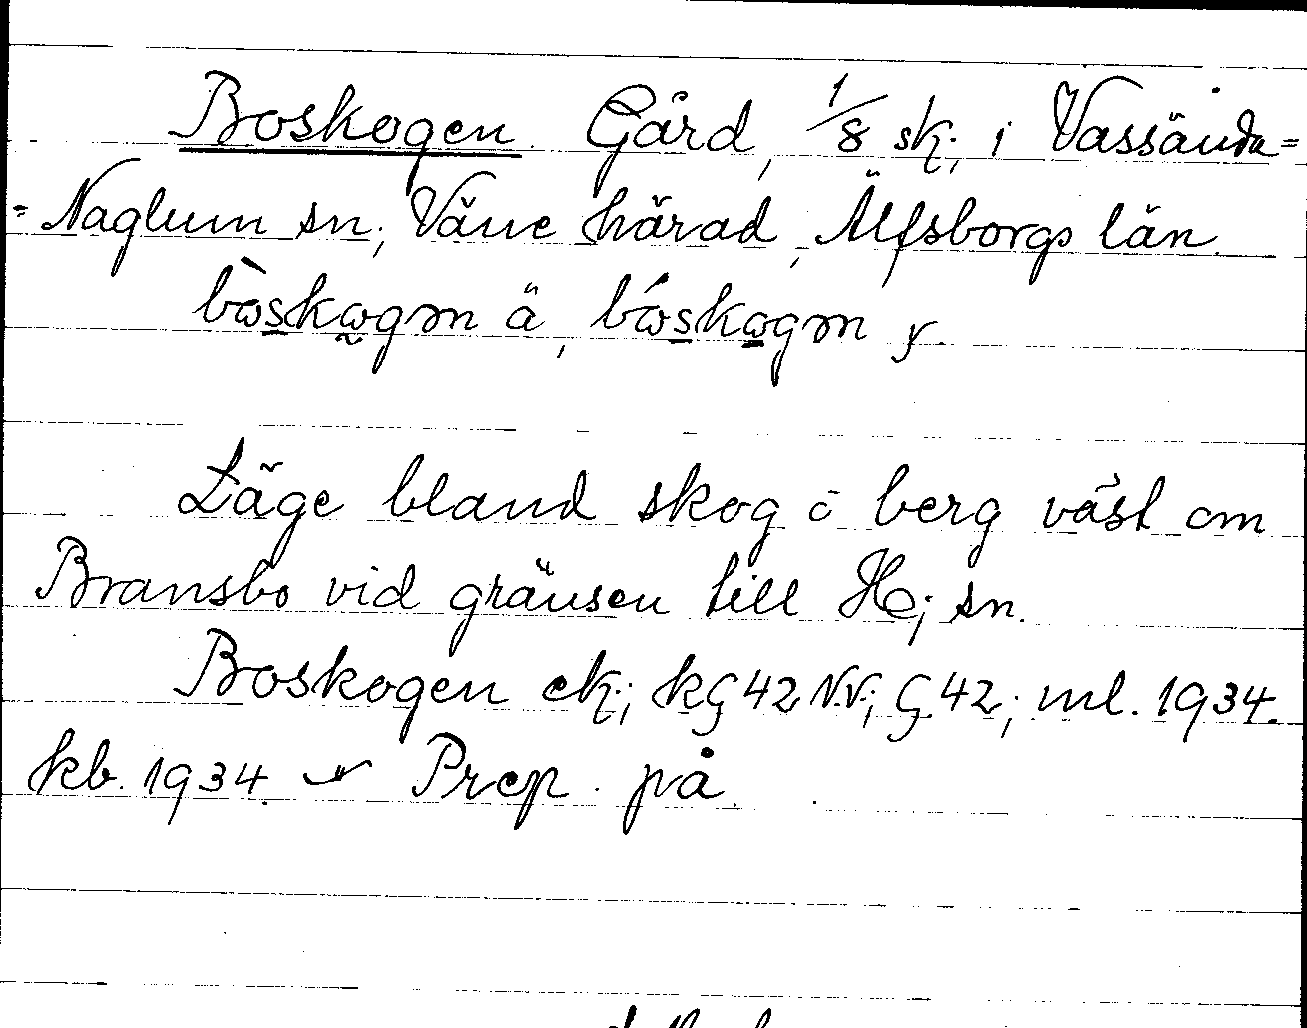 Boskogen Gård, 1/8 sk; i Vassända=
=Naglum sn; Väne härad, Älfsborgs län.
bòskogm ä, bóskogm y.
Läge bland skog o berg väst om
Bransbo vid gränsen till Hc; sn.
Boskogen ek; kG 42 NV; G 42; ml. 1934.
kb. 1934 Prep. på